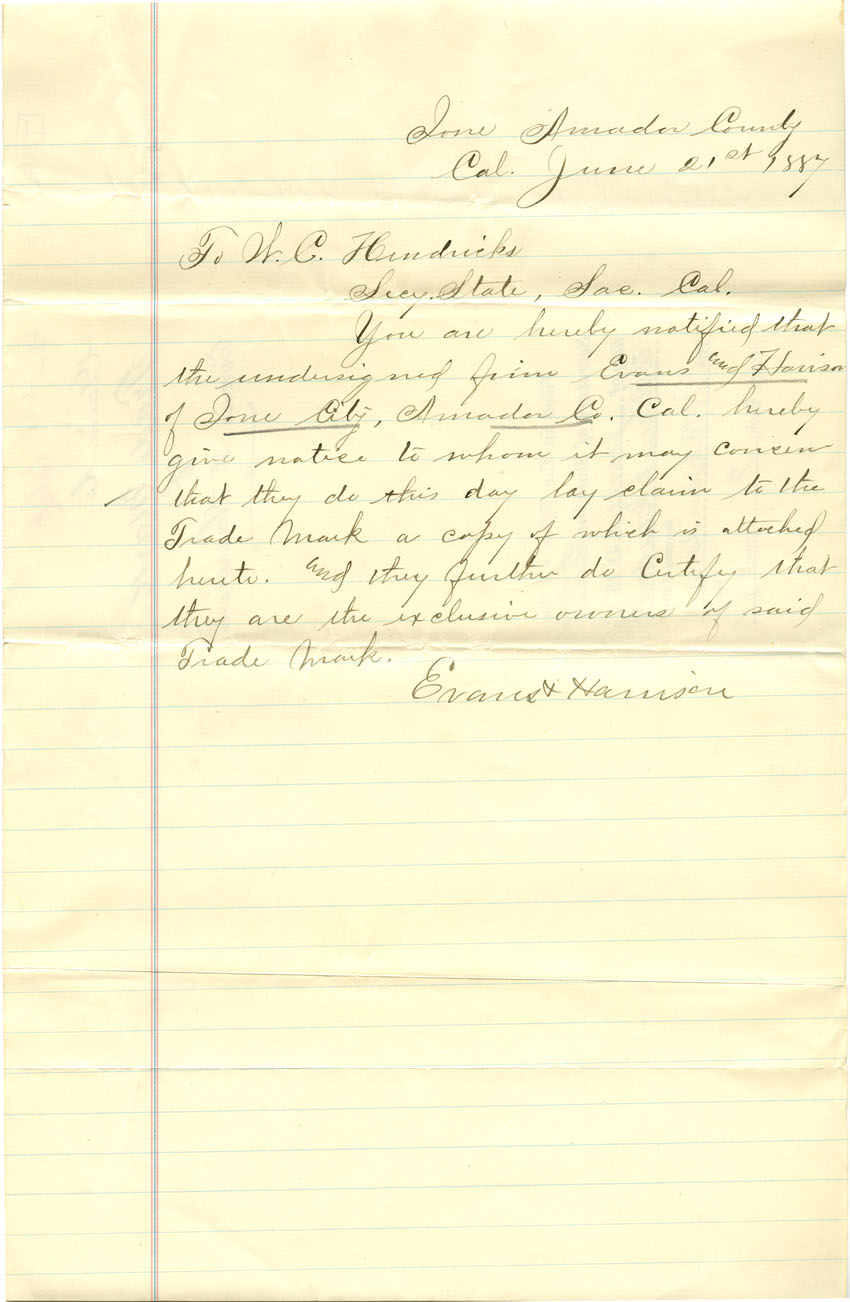 Ione Amador County
Cal. June 21st 1887
To W. C. Hendricks
Secy. State, Sac. Cal.
You are hereby notified that
the undersigned firm Evans and Harrison
of Ione City, Amador Co. Cal. hereby
give notice to whom it may concern
that they do this day lay claim to the
Trade Mark a copy of which is attached
hereto. And they further do Certify that
they are the exclusive owners of said
Trade Mark.
Evans & Harrison